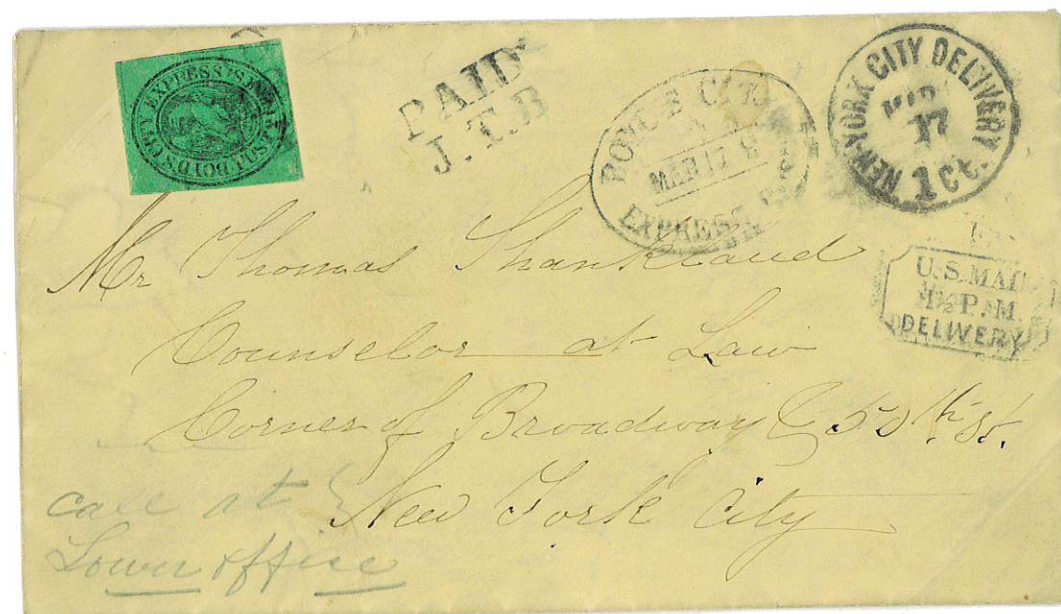 BOYD'S CITY EXPRESS
PAID
J.T.B
BOYCE CITY
MAR 17
EXPRESS
NEW-YORK CITY DELIVERY
MAR
17
1 Ct.
U.S. MAIL
1½ P.M.
DELIVERY
Mr Thomas Shankland
Counselor at Law
Corner of Broadway & 50th St.
New York City
call at
Lower office